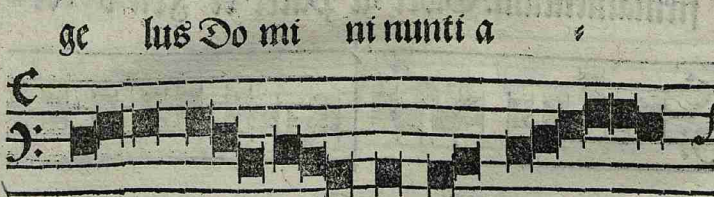 ge lus Do mi ni nunti a